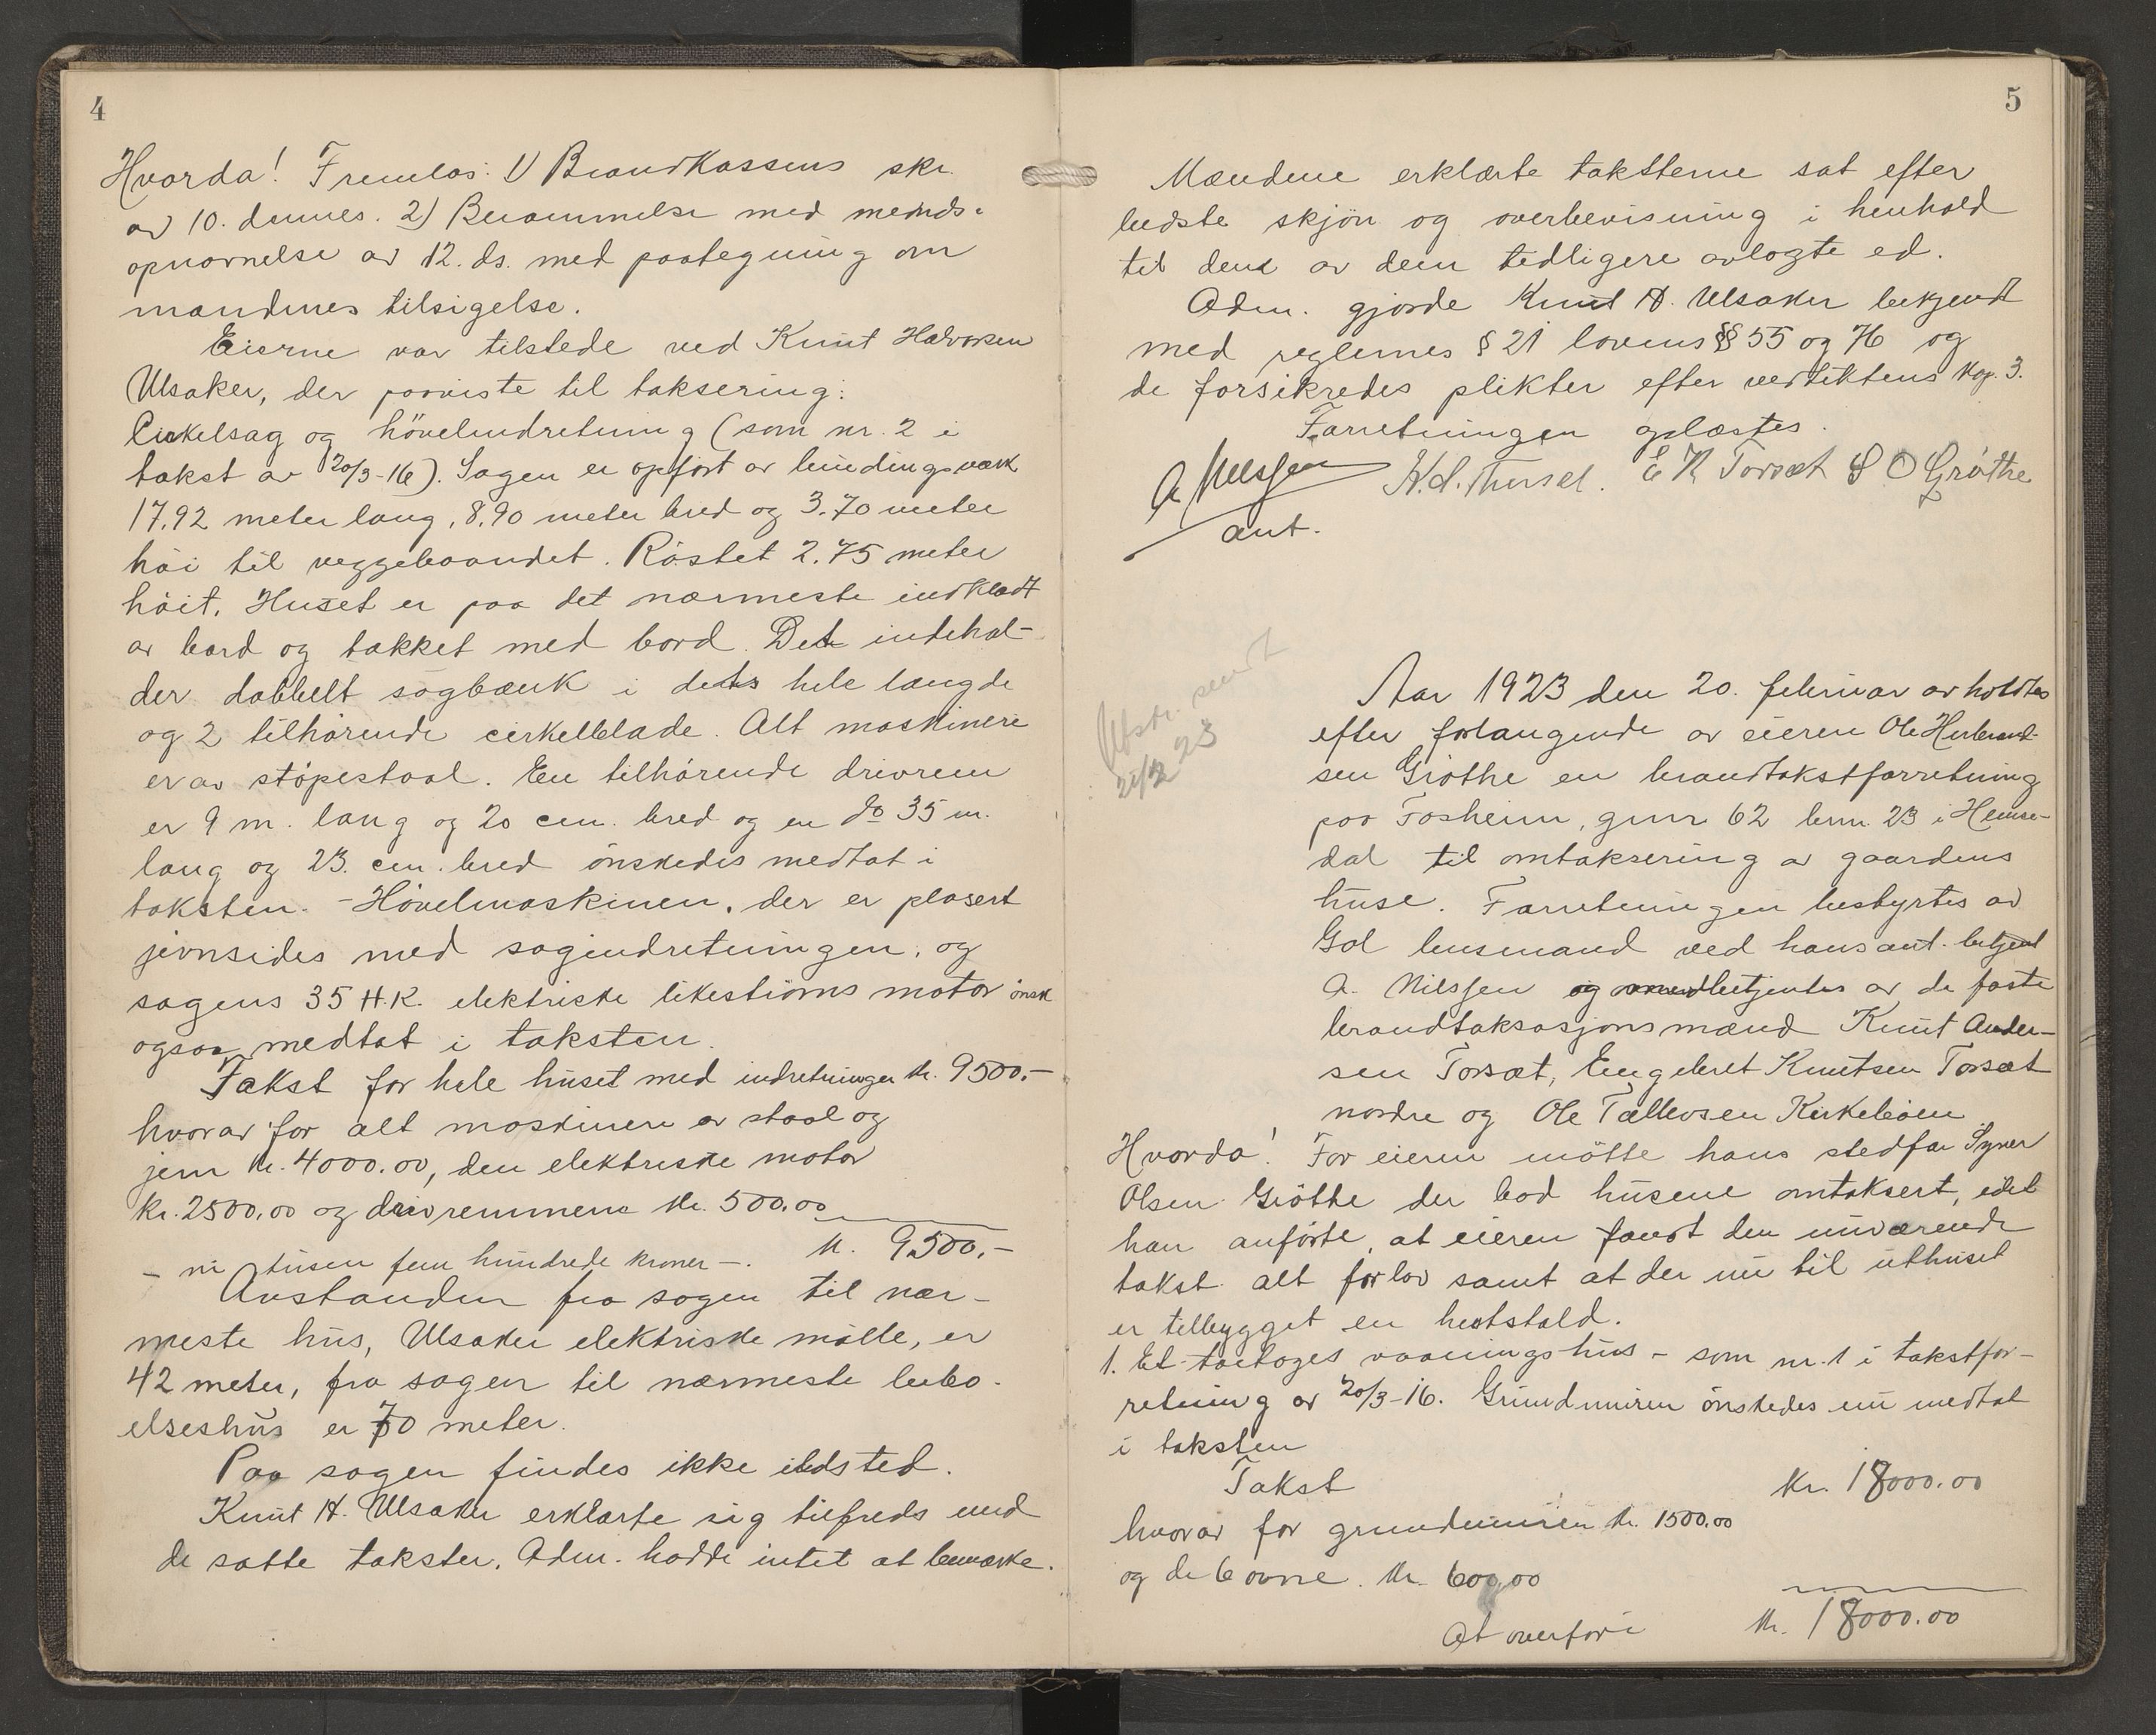 4
Hvorda! Fremlas: 1) Brandkassens skr.
av 10. dennes. 2) Berammelse med mends-
opnævnelse av 12. ds. med paategning om
mandenes tilsigelse.
Eierne var tilstede ved Knut Halvorsen
Ulsaker, der paaviste til taksering:
Cirkelsag og hövelindretning (som nr. 2 i
takst av 20/3-16). Sagen er opført av bindingsverk
17,92 meter lang, 8,90 meter bred og 3.70 meter
höi til veggebaandet. Röstet 2.75 meter
höit. Huset er paa det nærmeste indklædt
av bord og takket med bord. Det indehol-
der dobbelt sagbænk i dets hele længde
og 2 tilhörende cirkelblade. Alt maskineri
er av stöpestaal. En tilhörende drivrem
er 9 m. lang og 20 cm. bred og en do 35 m.
lang og 23. cm. bred önskedes medtat i
taksten. - Hövelmaskinen, der er plasert
jevnsides med sagindretningen, og
sagens 35 H.K. elektriske likeströms motor önsk
ogsaa medtat i taksten.
Takst for hele huset med indretninger kr. 9500,-
hvorav for alt maskineri av staal og
jern kr. 4000.00, den elektriske motor
kr. 2500,00 og drivremmene kr. 500,00
- ni tusen fem hundrede kroner -. kr. 9500,-
Avstanden fra sagen til nær-
meste hus, Ulsaker elektriske mölle, er
42 meter, fra sagen til nærmeste bebo-
elseshus er 70 meter.
Paa sagen findes ikke ildsted.
Knut H. Ulsaker erklærte sig tilfreds med
de satte takster. Adm. hadde intet at bemærke.
5
Mændene erklærte taksterne sat efter
bedste skjön og overbevisning i henhold
til den av dem tidligere avlagte ed.
Adm. gjorde Knut H. Ulsaker bekjendt
med reglernes § 21 lovens §§ 55 og 76 og
de forsikredes plikter efter vedtektens kap. 3.
Forretningen oplæstes.
A Nilssen E K Torsæt S O Gröthe
ant.
Utskr. sendt
21/2 23
Aar 1923 den 20. februar avholdtes
efter forlangende av eieren Ole Herbrand-
sen Gröthe en brandtakstforretning
paa Fosheim, gnr 62 brnr. 23 i Hemse-
dal til omtaksering av gaardens
huse. Forretningen bestyrtes av
Gol lensmand ved hans aut. betjent
A. Nilssen og medbetjentes av de faste
brandtaksasjonsmænd Knut Ander-
sen Torsæt, Engebret Knutsen Torsæt
nordre og Ole Tollevsen Kirkeböen
Hvorda! For eieren mötte hans stedfar Syver
Olsen Gröthe der bad husene omtaksert, idet
han anförte, at eieren fandt den nuværende
takst alt for lav samt at der nu til uthuset
er tilbygget en heststald.
1. Et toetages vaaningshus - som nr. 1 i takstfor-
retning av 20/3-16. Grundmuren önskedes nu medtat
i taksten
Takst kr. 18000.00
hvorav for grundmuren kr. 1500,00
og de 6 ovne. kr. 600,00
At overföre kr. 18000.00